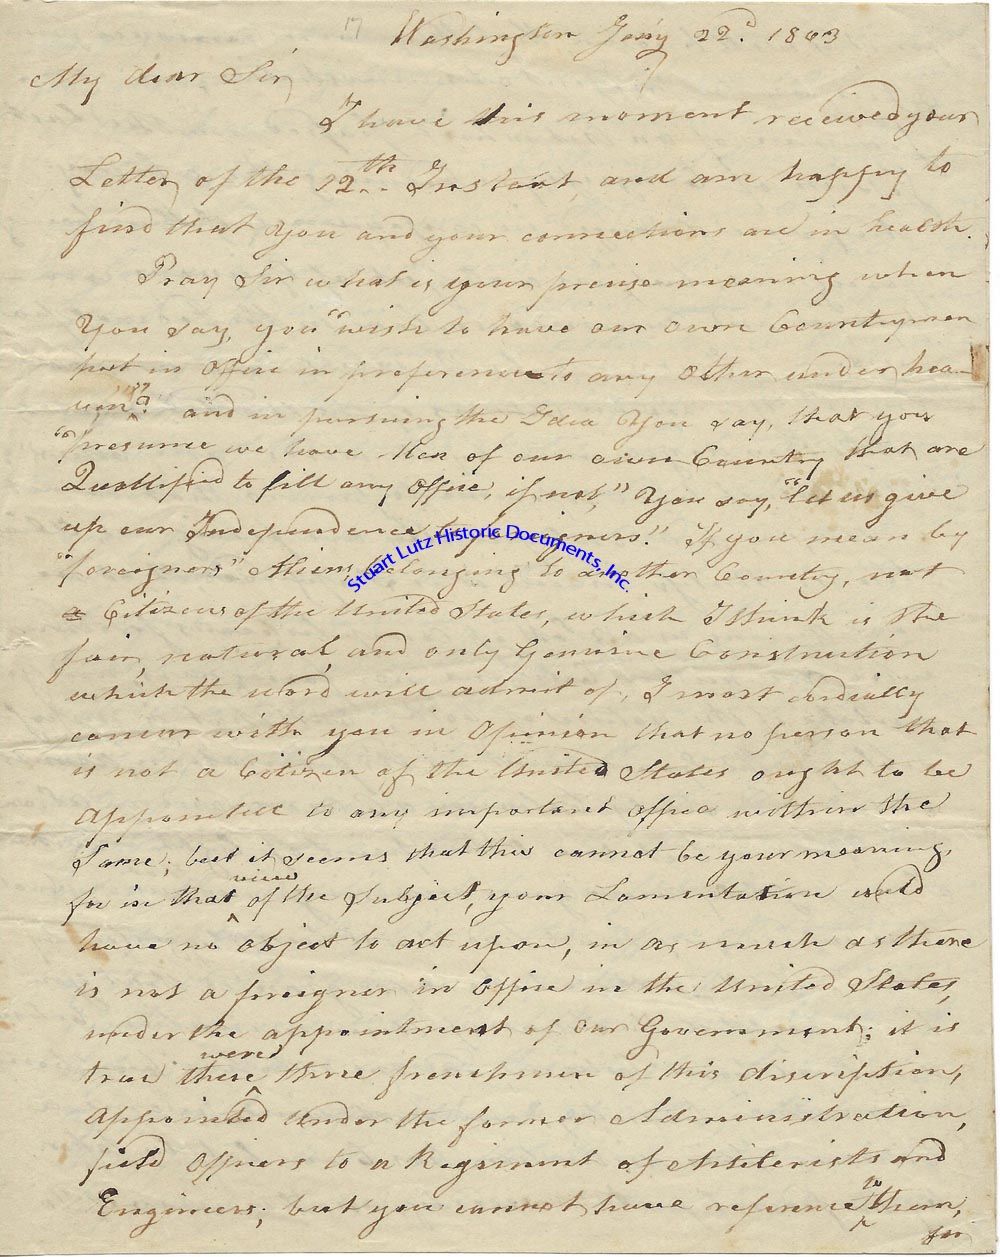 17
Washington Jany 22d. 1803
My dear Sir,
I have this moment received your
Letter, of the 12th.. Instant, and am happy to
find that You and your connections are in health.
Pray Sir what is your precise meaning when
You say, you "wish to have our own Countrymen
put in Office in preference to any other under hea-
ven"? and in pursuing the Idea You say, that you
"presume we have Men of our own Country that are
Quallified to fill any Office, if not," You say, "let us give
up our Independence to foreigners." If you mean by
"foreigners" Aliens belonging to another Country, not
Citizens of the United States, which I think is the
fair, natural, and only Genuine Construction
which the word will admit of, I most cordially
concur with you in Opinion that no person that
is not a Citizen of the United States ought to be
Appointed to any important Office within the
Same; but it seems that this cannot be your meaning,
for in that view of the Subject, your Lamentation would
have no object to act upon, in as much as there
is not a foreigner in Office in the United States,
under the appointment of our Government; it is
true there were three frenchmen of this discription,
Appointed under the former Administration,
field Officers to a Regiment of Artilerists and
Engineers; but you cannot have reference to them,
for
Stuart Lutz Historic Documents, Inc.